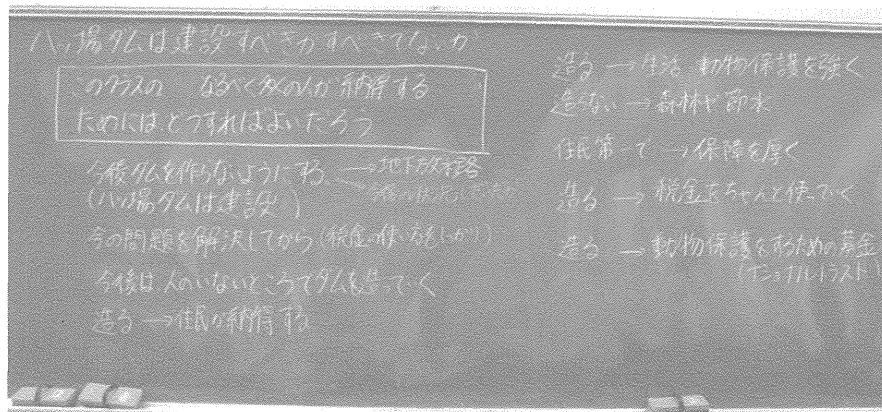 八ッ場ダムは建設すべきかすべきでないか
このクラスの なるべく多くの人が納得する
ためにはどうすればよいだろう
今後ダムを作らないようにする → 地下放水路
(八ッ場ダムは建設)
今の問題を解決してから (税金の使い方をしっかり)
今後は人のいないところでダムを造っていく
造る → 住民が納得する
造る → 生活 動物保護を強く
造らない → 森林や節水
住民第一で → 保障を厚く
造る → 税金をちゃんと使っていく
造る → 動物保護をするための募金
(ナショナルトラスト)